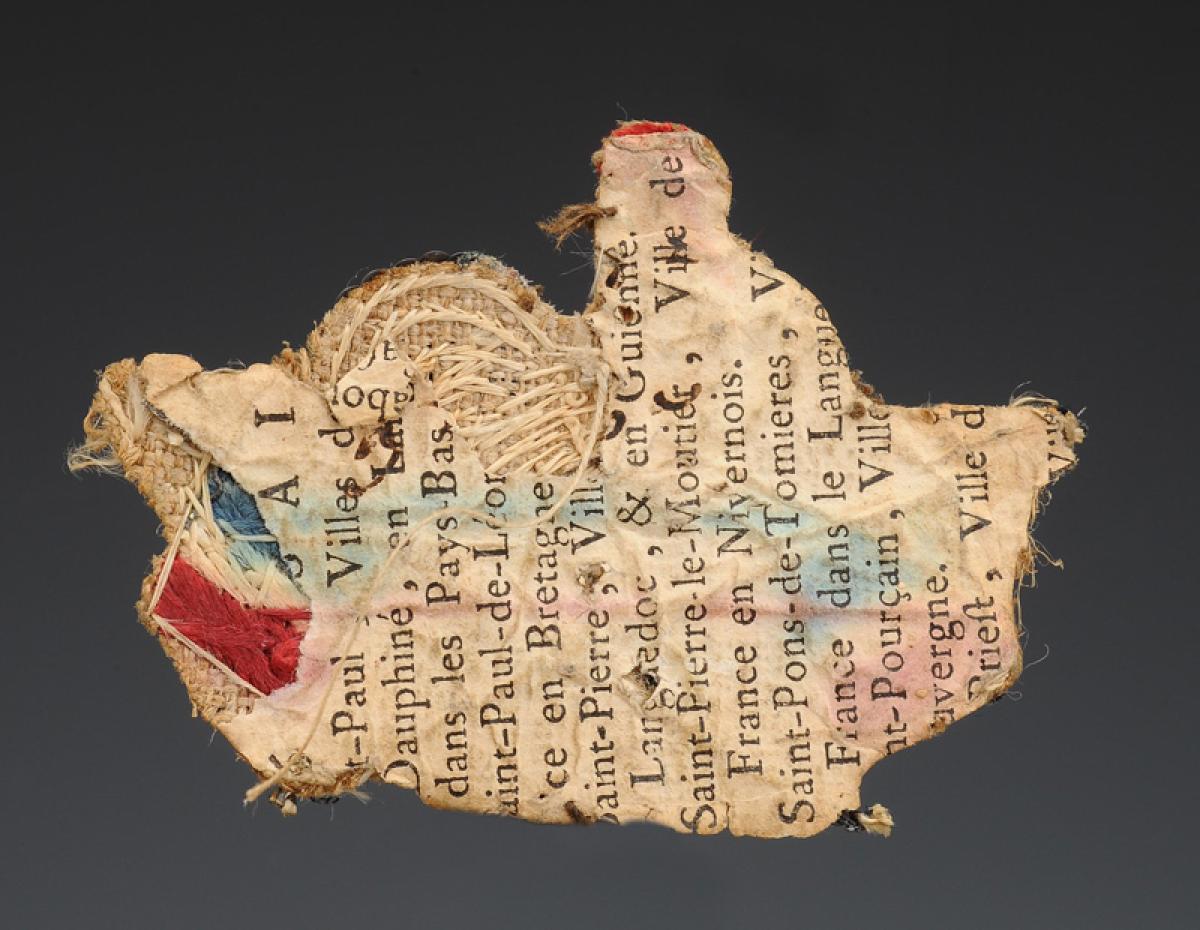 S A I
t-Paul Villes d
Dauphiné, en Lang
dans les Pays-Bas.
aint-Paul-de-Léon
ce en Bretagne
aint-Pierre, Ville
Languedoc, & en Guienne.
Saint-Pierre-le-Moutier, Ville de
France en Nivernois.
Saint-Pons-de-Tomieres, Vi
France dans le Langue
nt-Pourçain, Ville
avergne.
Prieſt, Ville d